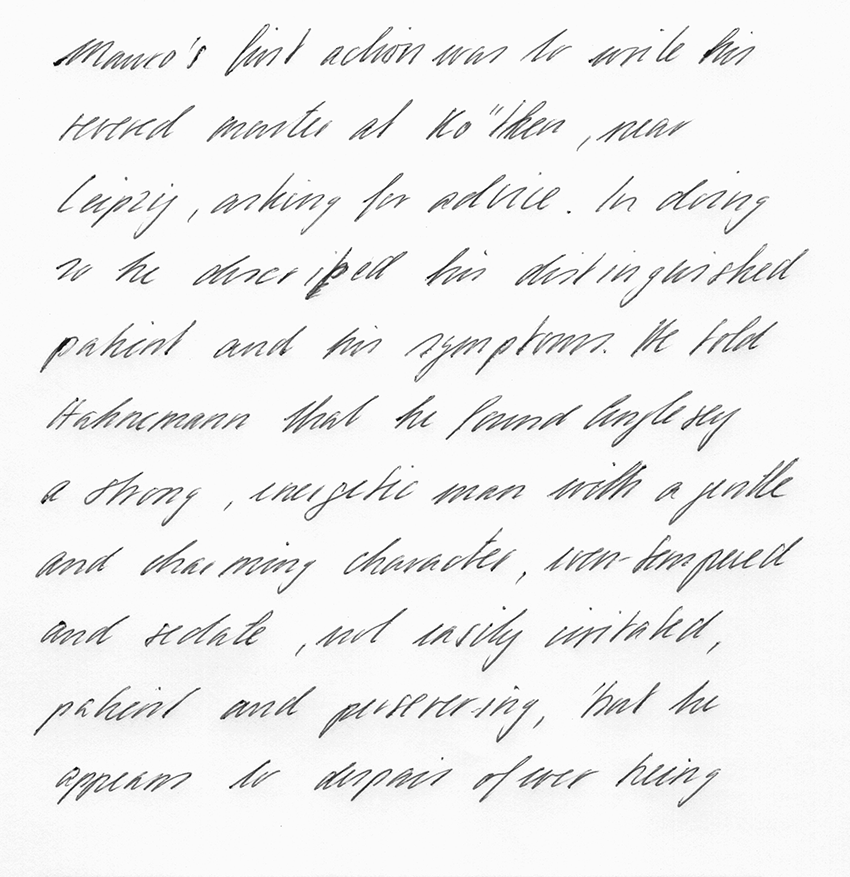 Mauro's first action was to write his
revered master at Ko"then, near
Leipzig, asking for advice. In doing
so he described his distinguished
patient and his symptoms. He told
Hahnemann that he found Anglesey
a strong, energetic man with a gentle
and charming character, even-tempered
and sedate, not easily irritated,
patient and persevering, 'but he
appears to despair of ever being